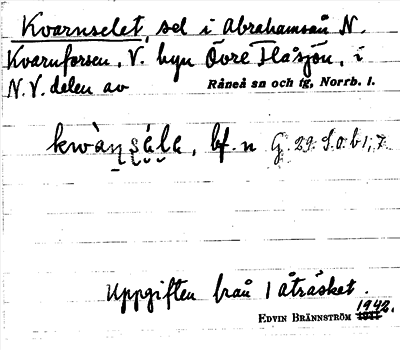 Kvarnselet, sel i Abrahamsån N.
Kvarnforsen, V. byn Övre Flåsjön, i
N.V. delen av Råneå sn och tg, Norrb. l.
kwàṇṣə́lə, bf. n G. 29. S.o.b 1; 7
Uppgiften från 1 åträsket.
EDVIN BRÄNNSTRÖM 1942.